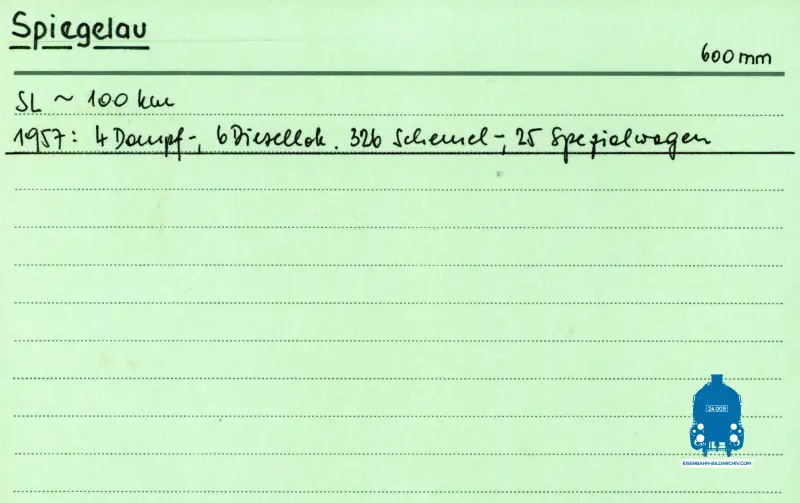 Spiegelau
600 mm
SL ~ 100 km
1957: 4 Dampf-, 6 Diesellok. 326 Schemel-, 25 Spezialwagen
24 009
EISENBAHN-BILDARCHIV.COM